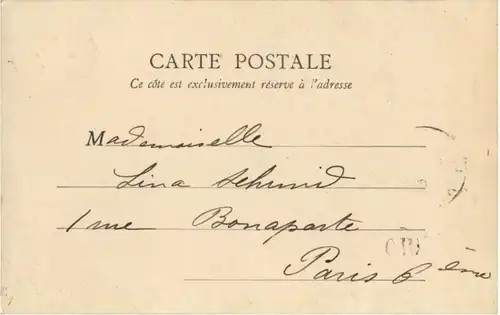 CARTE POSTALE
Ce côté est exclusivement réservé à l'adresse
Mademoiselle
Lina Schmid
1 rue Bonaparte
Paris 6 ème